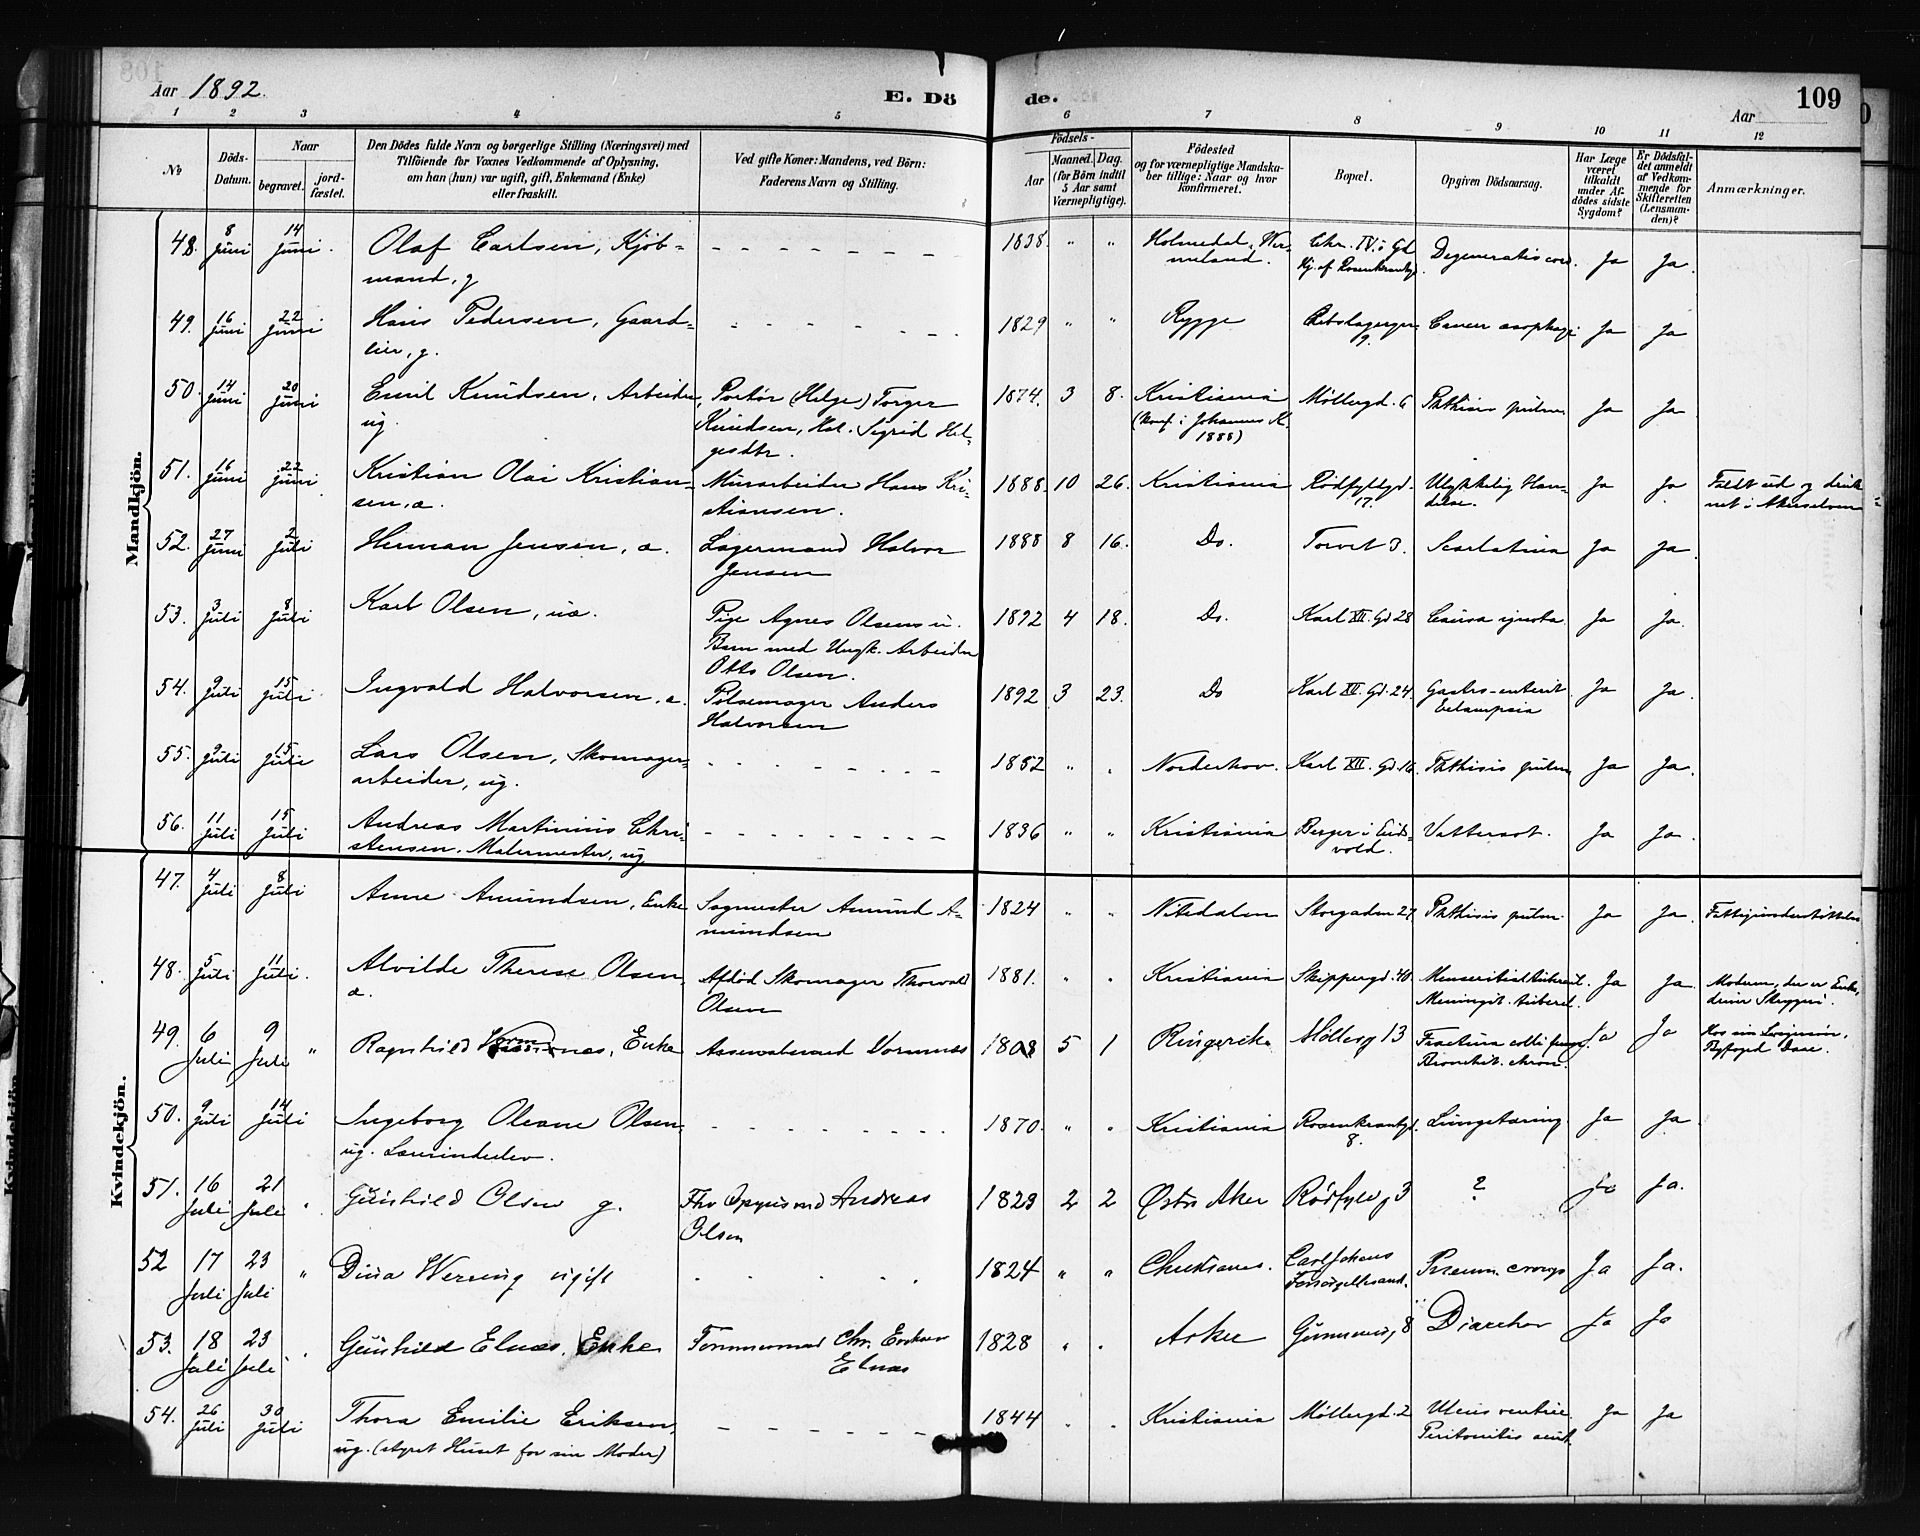 Aar 1892.
E. Döde.
Aar
109
1 2 3 4 5 6 7 8 9 10 11 12
No
Döds-Datum.
Naar
begravet.
jordfæstet.
Den Dödes fulde Navn og borgerlige Stilling (Næringsvei) med
Tilföiende for Voxnes Vedkommende af Oplysning,
om han (hun) var ugift, gift, Enkemand (Enke)
eller fraskilt.
Ved gifte Koner: Mandens, ved Börn:
Faderens Navn og Stilling.
Födsels-
Aar
Maaned. Dag.
(for Börn indtil
5 Aar samt
Værnepligtige).
Födested
og for værnepligtige Mandska-
ber tillige: Naar og hvor
Konfirmeret.
Bopæl.
Opgiven Dödsaarsag.
Har Læge
været
tilkaldt
under Af-
dödes sidste
Sygdom?
Er Dödsfal-
det anmeldt
af Vedkom-
mende for
Skifteretten
(Lensman-
den)?
Anmærkninger.
Mandkjön.
48. 8 Juni 14 Juni Olaf Carlsen, Kjöb- 1838 " " Holmedal, Wer- Chr. IV.s Gd Degeneratio cord. Ja Ja.
mand, g meland. Hj. af Rosenkrantzgd
49. 16 Juni 22 Juni Hans Pedersen, Gaard- 1829 " " Rygge Rebslagergn Cancer oesophagi Ja Ja
eier, g. 9.
50. 14 Juni 20 Juni Emil Knudsen, Arbeider, Portör (Helge) Torger 1874. 3 8. Kristiania Möllergd. 6 Phthisis pulm Ja Ja
ug. Knudsen, Hal. Sigrid Hel- (konf. i Johannes K.
gesdtr. 1888)
51. 16 Juni 22 Juni Kristian Olai Kristian- Murarbeider Hans Kri- 1888 10 26. Kristiania Rödfyldgd. Ulykkelig Hæn- Ja Ja Faldt ud og druk-
sen, æ. stiansen. 17. delse. net i Akerselven
52. 27 Juni 2 Juli Herman Jensen, æ. Lagermand Halvor 1888 8 16. Do. Torvet 3. Scarlatina Ja Ja.
Jensen
53. 3 Juli 8 Juli Karl Olsen, uæ. Pige Agnes Olsens u. 1892 4 18. Do. Karl XII. Gd 28 Causa ignota Ja Ja.
Barn med Ungk. Arbeider
Otto Olsen.
54. 9 Juli 15 Juli Ingvald Halvorsen, æ. Pölsemager Anders 1892 3 23. Do Karl XII. Gd. 24. Gastro-enterit Ja Ja.
Halvorsen Eclampsia
55. 9 Juli 15 Juli Lars Olsen, Skomager- 1852 " " Norderhov. Karl XII. Gd. 16. Phthisis pulm Ja Ja.
arbeider, ug.
56. 11 Juli 15 Juli Andreas Martinius Chri- 1836 " " Kristiania Berger i Eids- Vattersot. Ja Ja.
stensen. Malermester, ug vold.
Kvindekjön.
47. 4 Juli 8 Juli Anne Amundsen, Enke Sagmester Amund A- 1824 " " Nitedalen Storgaden 27. Phthisis pulm. Ja Ja. Fattigunderstöttelse
mundsen
48. 5 Juli 11 Juli. Alvilde Therese Olsen, Afdöd Skomager Thorvald 1881. " " Kristiania Skippergd. 40. Ja Ja. Moderen, der er Enke,
æ. Olsen Meningit. tubercl. driver Skyggeri.
49. 6 Juli 9 Juli " Ragnhild Vormnæs, Enke Vormnæs 1808 5 1 Ringerike Möllerg 13 Fractura colli Ja Ja Hos sin Svigersön,
Bronchit. chron. Byfoged
50. 9 Juli 14 Juli Ingeborg Oleane Olsen, 1870. " " Kristiania Rosenkrantzgd. Lungetæring Ja Ja
ug. Lærerindeelev. 8.
51. 16 Juli 21 Juli " Gunhild Olsen g. Fhv Opsynsmd Andreas 1823 2 2 Östre Aker Rödfyldg 3 ? ja Ja.
Olsen
52 17 Juli 23 Juli " Dina Werring ugift 1824 " " Christianss. Carl Johans Pneum. croup Ja Ja.
Forsörgelsesanst.
53. 18 Juli 23 Juli " Gunhild Elnæs, Enke Tömmermand Chr. Eriksen 1828 " " Asker 8 Diarrhoe Ja Ja
Elnæs
54. 26 Juli 30 Juli Thora Emilie Eriksen, 1844 " " Kristiania Möllergd. 2 Ulcus ventric. Ja Ja
ug. (styret Huset for sin Moder) Peritonitis acut.
Kvindekjön